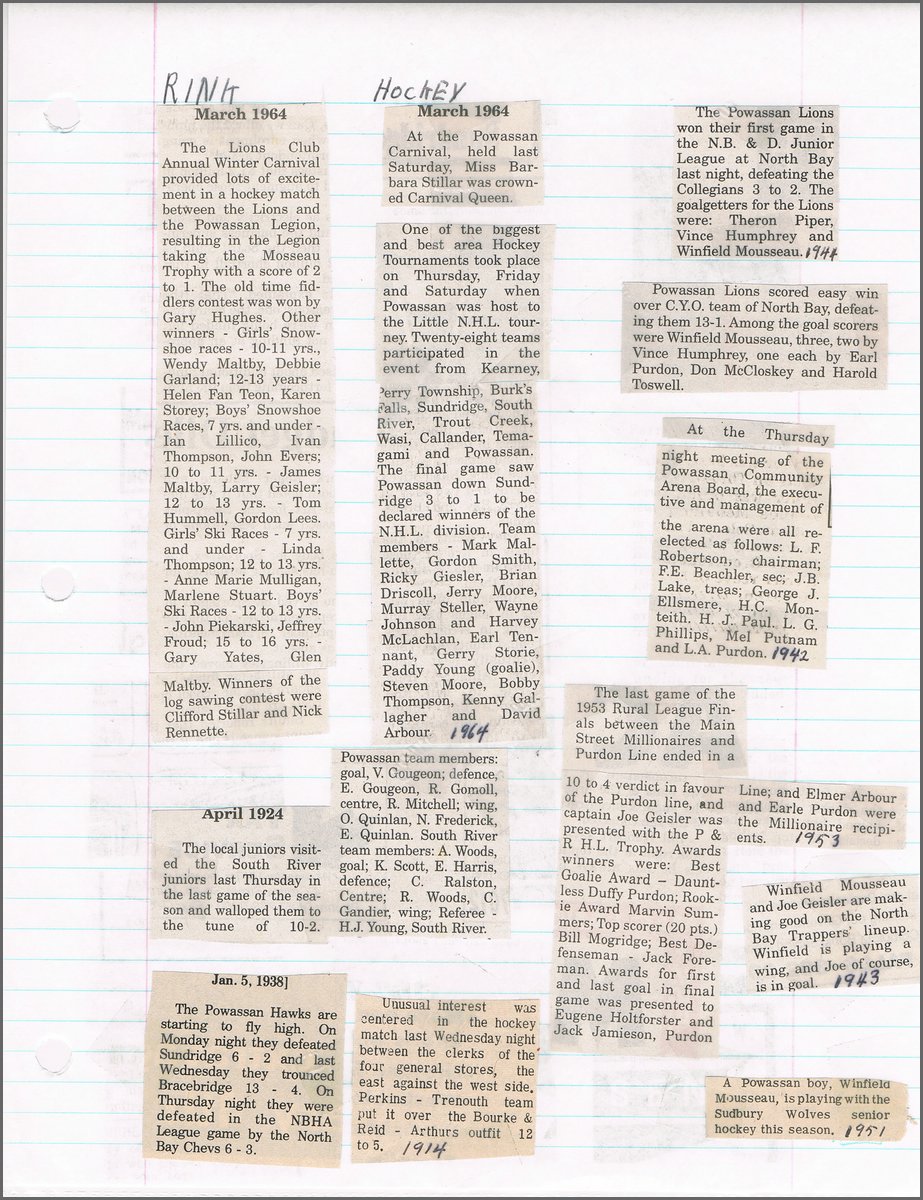 RINK
March 1964
The Lions Club
Annual Winter Carnival
provided lots of excite-
ment in a hockey match
between the Lions and
the Powassan Legion,
resulting in the Legion
taking the Mosseau
Trophy with a score of 2
to 1. The old time fid-
dlers contest was won by
Gary Hughes. Other
winners - Girls' Snow-
shoe races - 10-11 yrs.,
Wendy Maltby, Debbie
Garland; 12-13 years -
Helen Fan Teon, Karen
Storey; Boys' Snowshoe
Races, 7 yrs. and under -
Ian Lillico, Ivan
Thompson, John Evers;
10 to 11 yrs. - James
Maltby, Larry Geisler;
12 to 13 yrs. - Tom
Hummell, Gordon Lees.
Girls' Ski Races - 7 yrs.
and under - Linda
Thompson; 12 to 13 yrs.
- Anne Marie Mulligan,
Marlene Stuart. Boys'
Ski Races - 12 to 13 yrs.
- John Piekarski, Jeffrey
Froud; 15 to 16 yrs. -
Gary Yates, Glen
Maltby. Winners of the
log sawing contest were
Clifford Stillar and Nick
Rennette.
April 1924
The local juniors visit-
ed the South River
juniors last Thursday in
the last game of the sea-
son and walloped them to
the tune of 10-2.
Powassan team members:
goal, V. Gougeon; defence,
E. Gougeon, R. Gomoll,
centre, R. Mitchell; wing,
O. Quinlan, N. Frederick,
E. Quinlan. South River
team members: A. Woods,
goal; K. Scott, E. Harris,
defence; C. Ralston,
Centre; R. Woods, C.
Gandier, wing; Referee -
H.J. Young, South River.
Jan. 5, 1938]
The Powassan Hawks are
starting to fly high. On
Monday night they defeated
Sundridge 6 - 2 and last
Wednesday they trounced
Bracebridge 13 - 4. On
Thursday night they were
defeated in the NBHA
League game by the North
Bay Chevs 6 - 3.
HOCKEY
March 1964
At the Powassan
Carnival, held last
Saturday, Miss Bar-
bara Stillar was crown-
ed Carnival Queen.
One of the biggest
and best area Hockey
Tournaments took place
on Thursday, Friday
and Saturday when
Powassan was host to
the Little N.H.L. tour-
ney. Twenty-eight teams
participated in the
event from Kearney,
Perry Township, Burk's
Falls, Sundridge, South
River, Trout Creek,
Wasi, Callander, Tema-
gami and Powassan.
The final game saw
Powassan down Sund-
ridge 3 to 1 to be
declared winners of the
N.H.L. division. Team
members - Mark Mal-
lette, Gordon Smith,
Ricky Giesler, Brian
Driscoll, Jerry Moore,
Murray Steller, Wayne
Johnson and Harvey
McLachlan, Earl Ten-
nant, Gerry Storie,
Paddy Young (goalie),
Steven Moore, Bobby
Thompson, Kenny Gal-
lagher and David
Arbour. 1964
Unusual interest was
centered in the hockey
match last Wednesday night
between the clerks of the
four general stores, the
east against the west side.
Perkins - Trenouth team
put it over the Bourke &
Reid - Arthurs outfit 12
to 5. 1914
The Powassan Lions
won their first game in
the N.B. & D. Junior
League at North Bay
last night, defeating the
Collegians 3 to 2. The
goalgetters for the Lions
were: Theron Piper,
Vince Humphrey and
Winfield Mousseau. 1944
Powassan Lions scored easy win
over C.Y.O. team of North Bay, defeat-
ing them 13-1. Among the goal scorers
were Winfield Mousseau, three, two by
Vince Humphrey, one each by Earl
Purdon, Don McCloskey and Harold
Toswell.
At the Thursday
night meeting of the
Powassan Community
Arena Board, the execu-
tive and management of
the arena were all re-
elected as follows: L. F.
Robertson, chairman;
F.E. Beachler, sec; J.B.
Lake, treas; George J.
Ellsmere, H.C. Mon-
teith. H. J. Paul. L. G.
Phillips, Mel Putnam
and L.A. Purdon. 1942
The last game of the
1953 Rural League Fin-
als between the Main
Street Millionaires and
Purdon Line ended in a
10 to 4 verdict in favour
of the Purdon line, and
captain Joe Geisler was
presented with the P &
R H.L. Trophy. Awards
winners were: Best
Goalie Award – Daunt-
less Duffy Purdon; Rook-
ie Award Marvin Sum-
mers; Top scorer (20 pts.)
Bill Mogridge; Best De-
fenseman - Jack Fore-
man. Awards for first
and last goal in final
game was presented to
Eugene Holtforster and
Jack Jamieson, Purdon
Line; and Elmer Arbour
and Earle Purdon were
the Millionaire recipi-
ents. 1953
Winfield Mousseau
and Joe Geisler are mak-
ing good on the North
Bay Trappers' lineup.
Winfield is playing a
wing, and Joe of course,
is in goal. 1943
A Powassan boy, Winfield
Mousseau, is playing with the
Sudbury Wolves senior
hockey this season. 1951